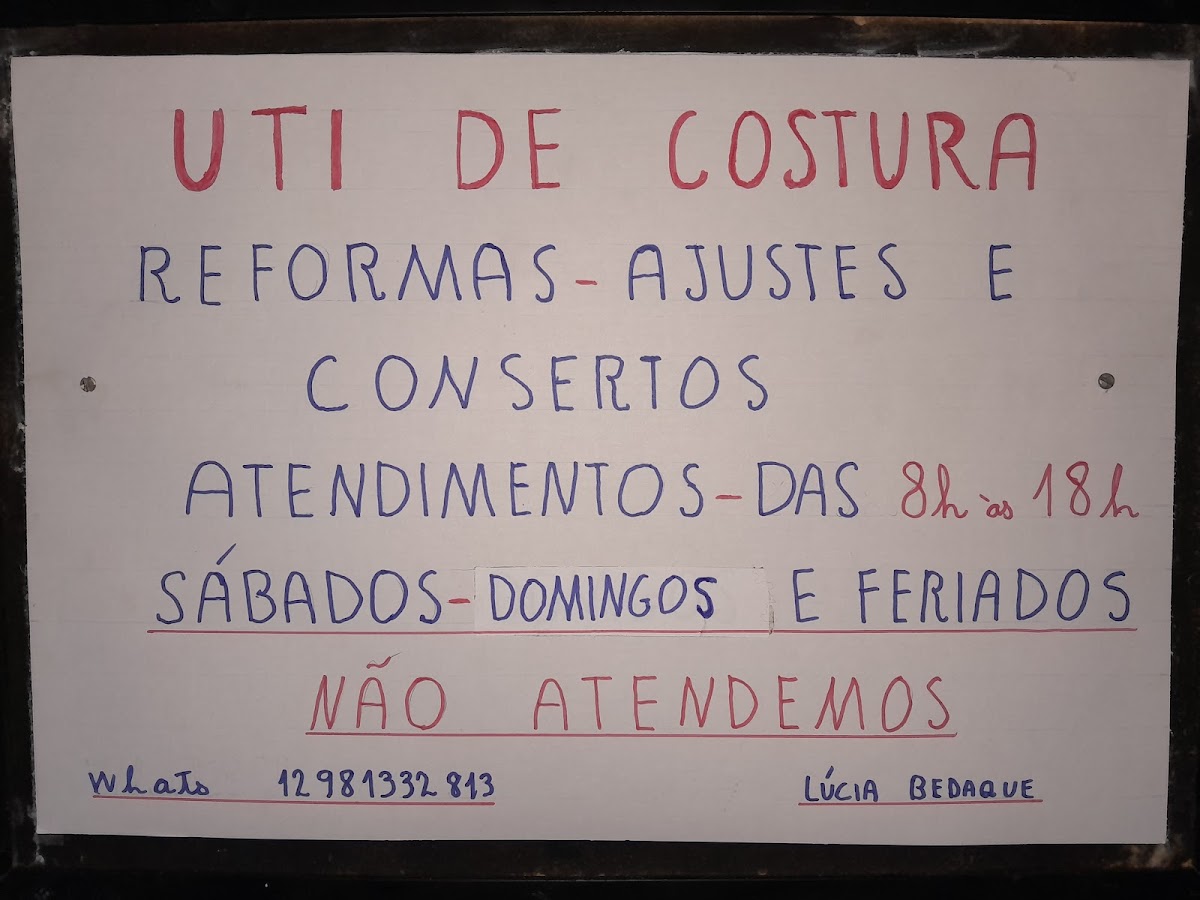 UTI DE COSTURA
REFORMAS - AJUSTES E
CONSERTOS
ATENDIMENTOS - DAS 8h às 18h
SÁBADOS - DOMINGOS E FERIADOS
NÃO ATENDEMOS
Whats 12981332813 LÚCIA BEDAQUE